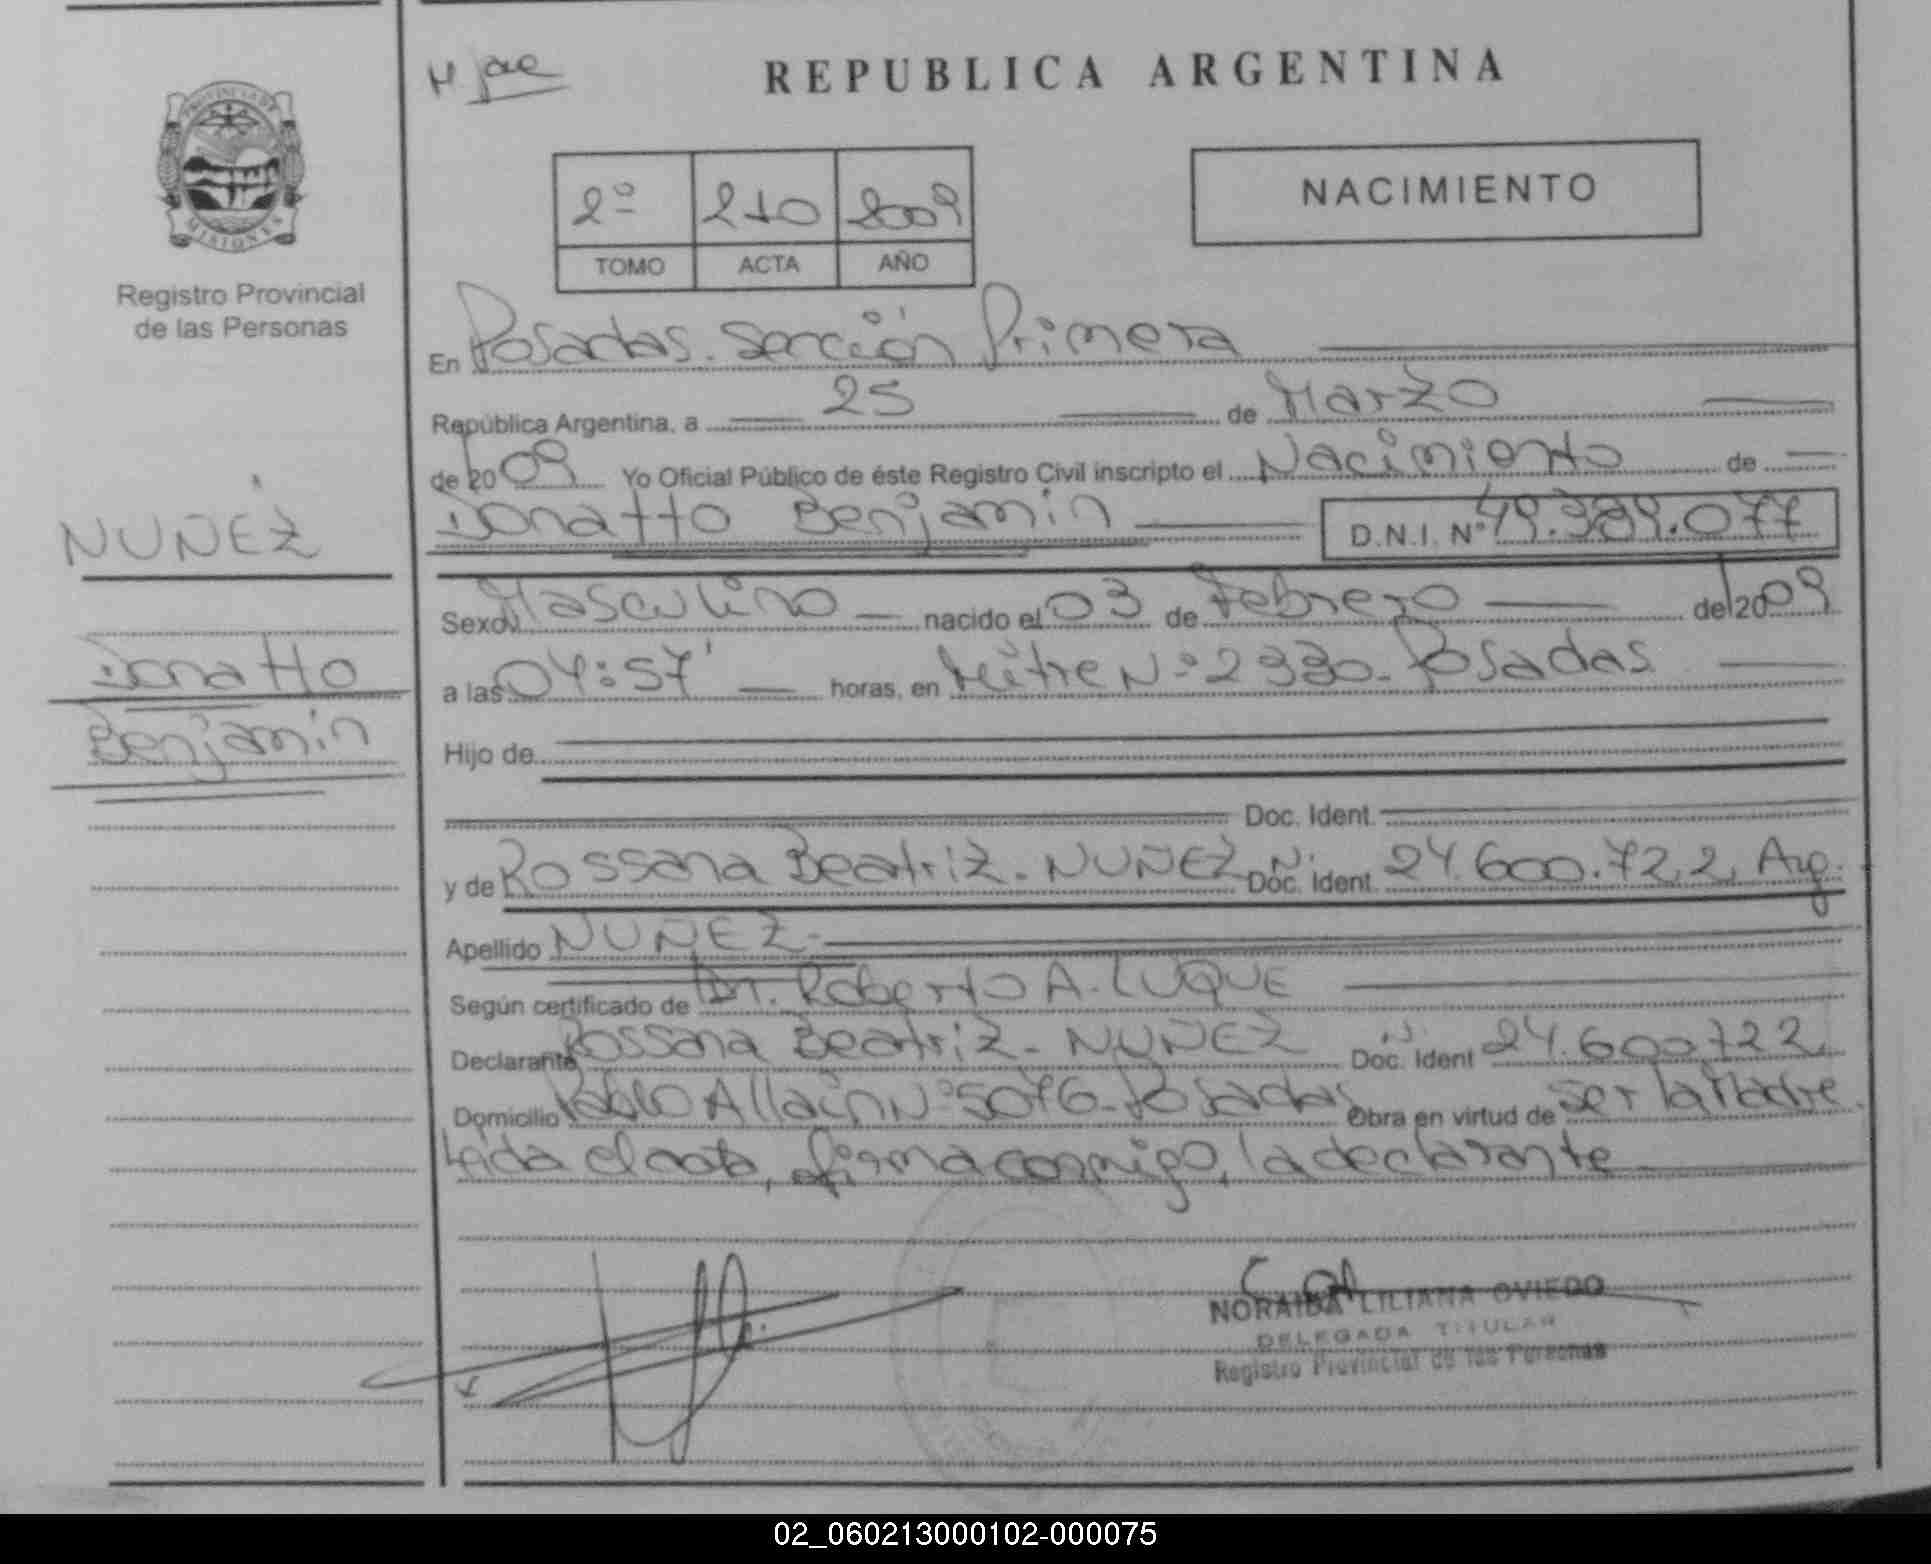 REPUBLICA ARGENTINA
PROVINCIA DE
MISIONES
Registro Provincial
de las Personas
2º 210 2009
TOMO ACTA AÑO
NACIMIENTO
En Posadas. Sección Primera
República Argentina, a 25 de Marzo
de 2009 Yo Oficial Público de éste Registro Civil inscripto el Nacimiento de
Donatto Benjamin D.N.I. Nº 49.389.077
NUÑEZ
Donatto
Benjamin
Sexo Masculino nacido el 03 de Febrero de 2009
a las 04:57' horas, en Mitre Nº 2330. Posadas
Hijo de
Doc. Ident.
y de Rossana Beatriz. NUÑEZ Doc. Ident. N: 24.600.722, Arg.
Apellido NUÑEZ.
Según certificado de Dr. Roberto A. LUQUE
Declarante Rossana Beatriz. NUÑEZ Doc. Ident N: 24.600.722
Domicilio Pablo Allain Nº 5076. Posadas Obra en virtud de ser la Madre.
Leida el acta, firma conmigo, la declarante
NORAIDA LILIANA OVIEDO
DELEGADA TITULAR
Registro Provincial de las Personas
02_060213000102-000075